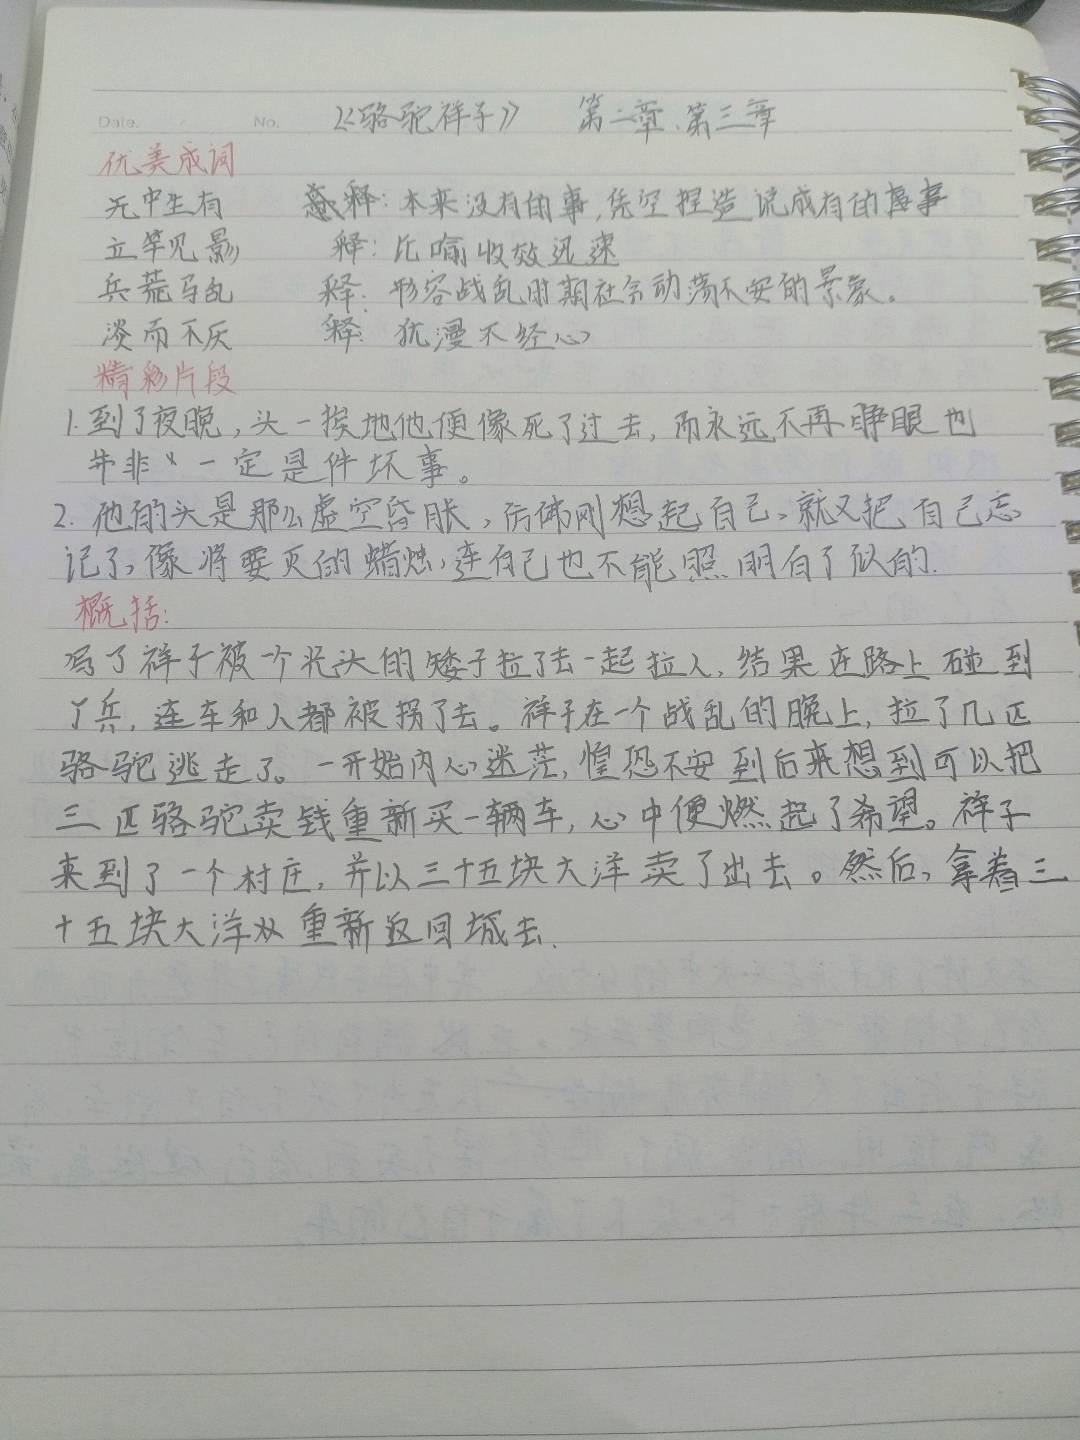 Date. No. 《骆驼祥子》 第二章、第三章
优美成词
无中生有 释:本来没有的事,凭空捏造说成有的事
立竿见影 释:比喻收效迅速
兵荒马乱 释:形容战乱时期社会动荡不安的景象。
漠而不厌 释:犹漫不经心
精彩片段
1.到了夜晚,头一挨地他便像死了过去,而永远不再睁眼也
并非一定是件坏事。
2.他的头是那么虚空昏胀,仿佛刚想起自己,就又把自己忘
记了,像将要灭的蜡烛,连自己也不能照明白了似的.
概括:
写了祥子被一个光头的矮子拉了去一起拉人,结果在路上碰到
了兵,连车和人都被拐了去。祥子在一个战乱的晚上,拉了几匹
骆驼逃走了。一开始内心迷茫,惶恐不安到后来想到可以把
三匹骆驼卖钱重新买一辆车,心中便燃起了希望。祥子
来到了一个村庄,并以三十五块大洋卖了出去。然后,拿着三
十五块大洋重新返回城去.